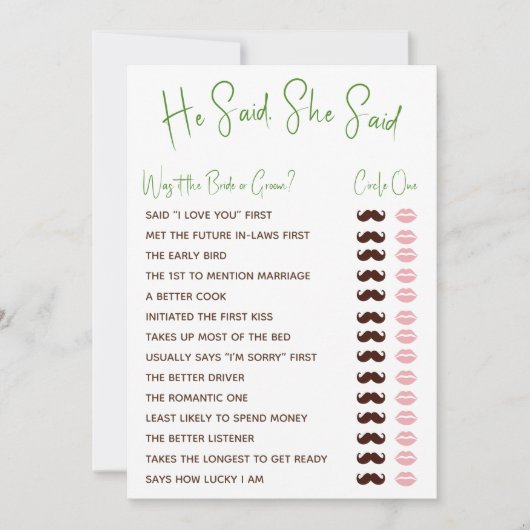 He Said, She Said
Was it the Bride or Groom? Circle One
SAID “I LOVE YOU” FIRST
MET THE FUTURE IN-LAWS FIRST
THE EARLY BIRD
THE 1ST TO MENTION MARRIAGE
A BETTER COOK
INITIATED THE FIRST KISS
TAKES UP MOST OF THE BED
USUALLY SAYS “I’M SORRY” FIRST
THE BETTER DRIVER
THE ROMANTIC ONE
LEAST LIKELY TO SPEND MONEY
THE BETTER LISTENER
TAKES THE LONGEST TO GET READY
SAYS HOW LUCKY I AM